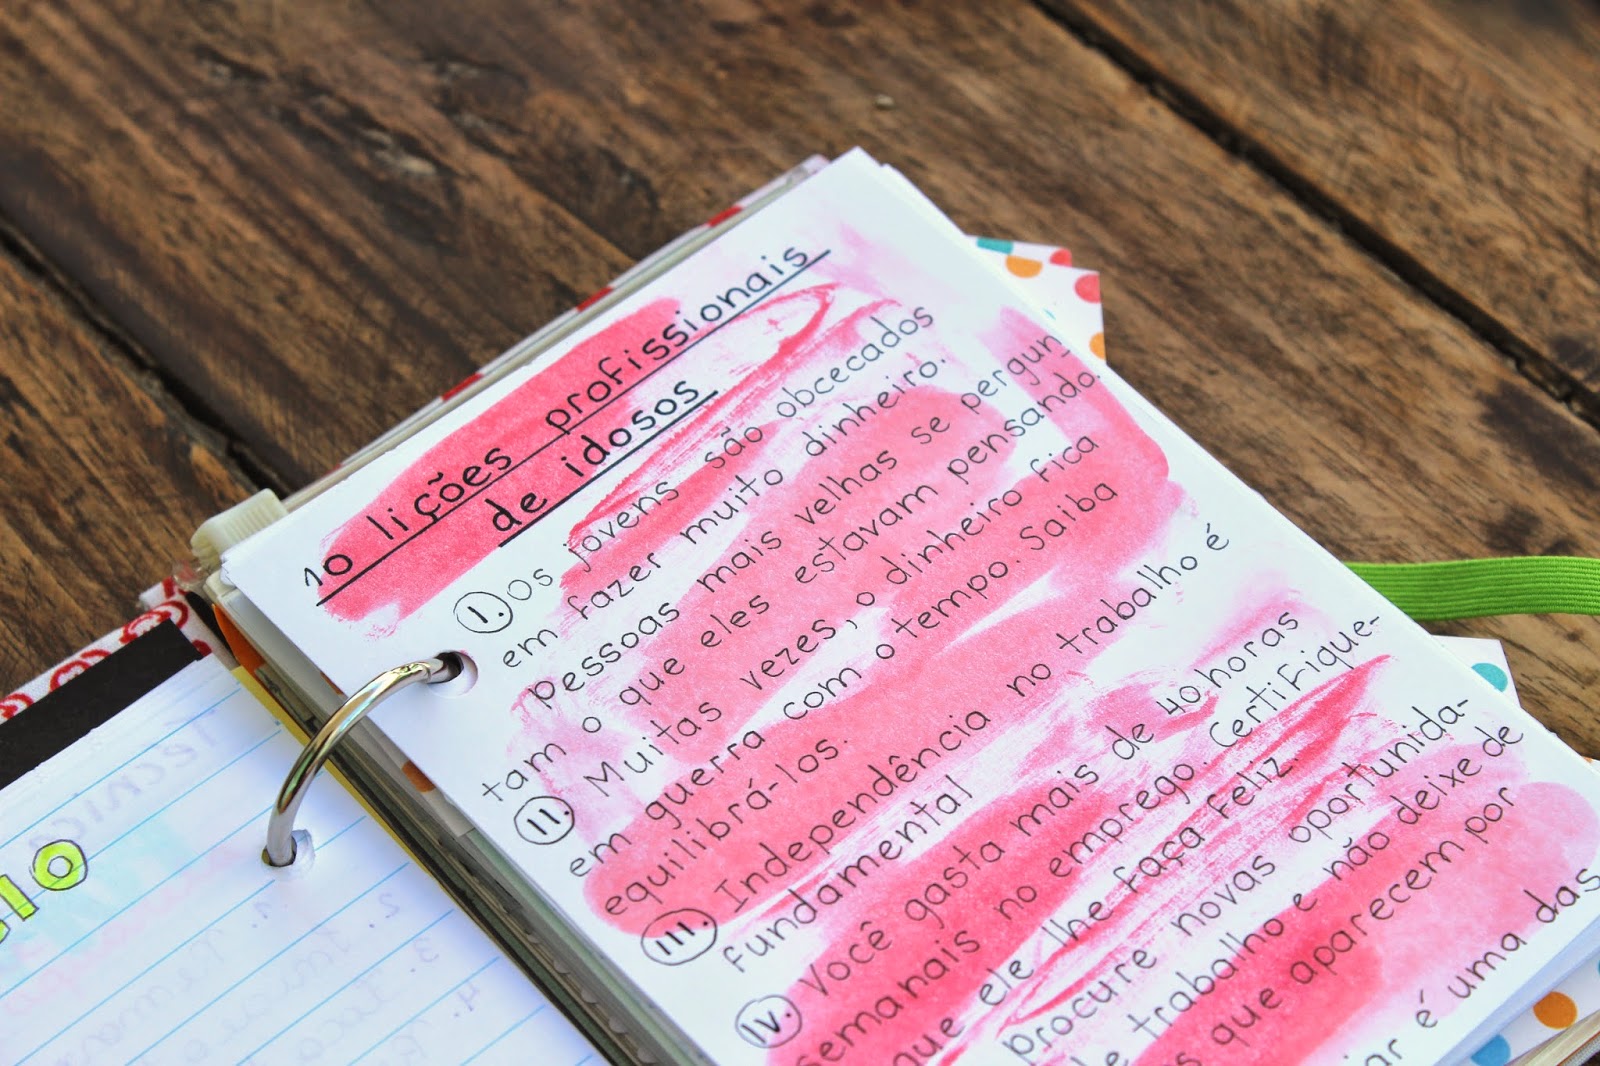 10 lições profissionais
de idosos
I. Os jovens são obcecados
em fazer muito dinheiro.
pessoas mais velhas se pergun_
tam o que eles estavam pensando.
II. Muitas vezes, o dinheiro fica
em guerra com o tempo. Saiba
equilibrá-los.
III. Independência no trabalho é
fundamental
IV. Você gasta mais de 40 horas
semanais no emprego. Certifique-
que ele lhe faça feliz.
procure novas oportunida-
trabalho e não deixe de
que aparecem por
é uma das